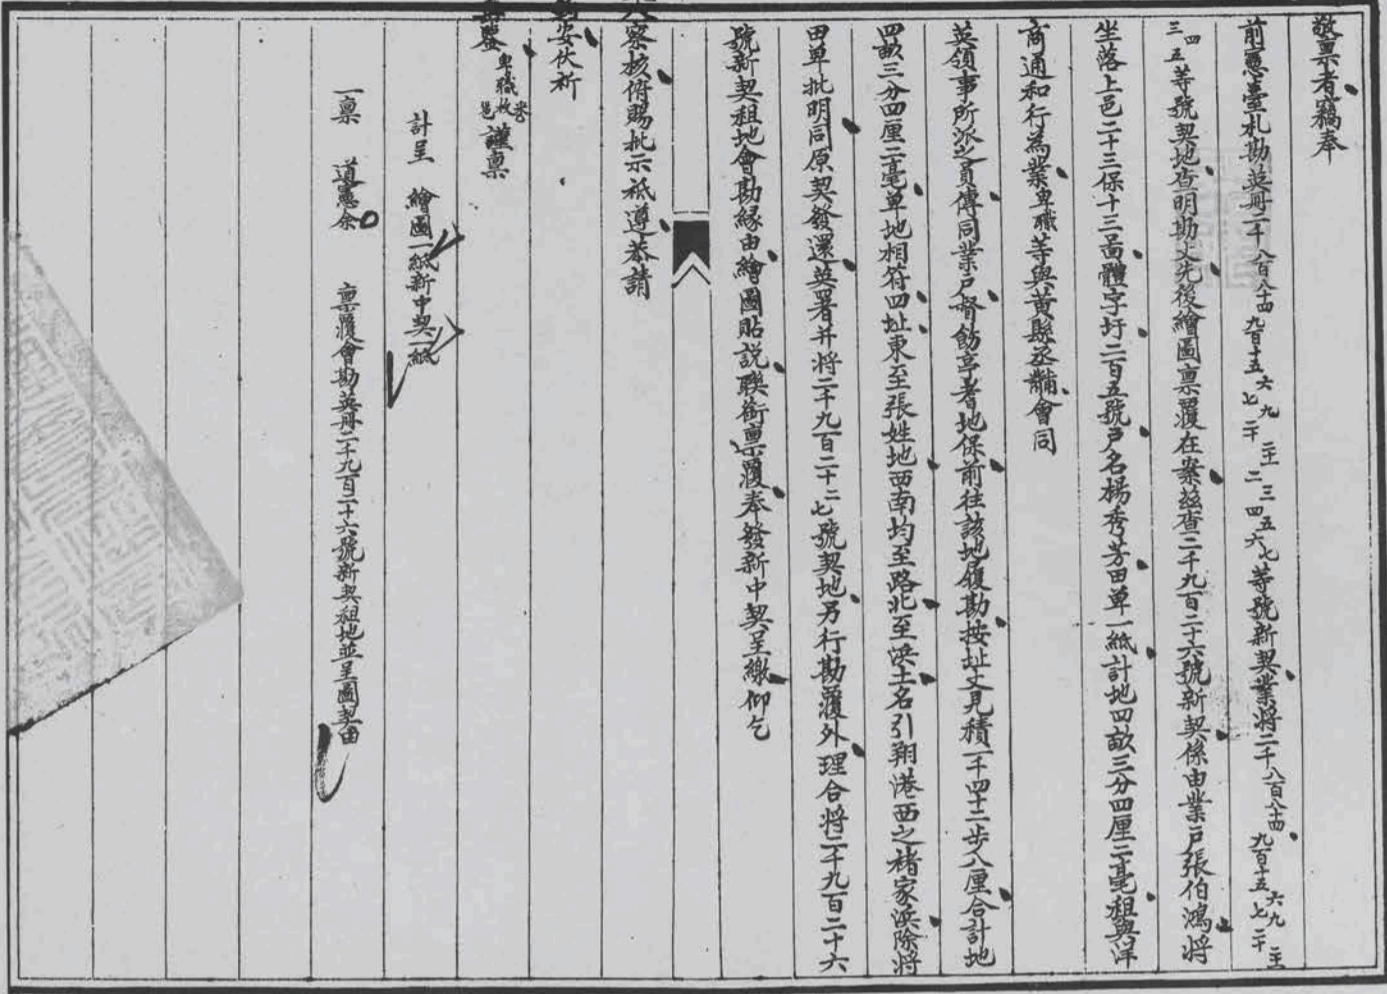 敬稟者竊奉
前憲臺札勘英冊二千八百八十四 九百十五 六 七 九 二十 二十一 二 三 四 五 六 七等號新契業將二千八百八十四 九百十五 六 七 九 二十 二十一
三 四 五等號契地查明勘丈先後繪圖稟覆在案茲查二千九百二十六號新契係由業戶張伯鴻將
坐落上邑二十三保十三圖體字圩二百五號戶名楊秀芳田單一紙計地四畝三分四厘二毫租與洋
商通和行為業卑職等與黃縣丞黼會同
英領事所派之員傳同業戶督飭亭耆地保前往該地履勘按址丈見積一千四十二步八厘合計地
四畝三分四厘二毫單地相符四址東至張姓地西南均至路北至浜土名引翔港西之褚家浜除將
田單批明同原契發還英署并將二千九百二十二 七號契地另行勘覆外理合將二千九百二十六
號新契租地會勘緣由繪圖貼說聯銜稟覆奉發新中契呈繳仰乞
察核俯賜批示祗遵恭請
勛安伏祈
鑒 卑職 謹稟
計呈 繪圖一紙新中契一紙
一稟 道憲余 稟覆會勘英冊二千九百二十六號新契租地並呈圖契由